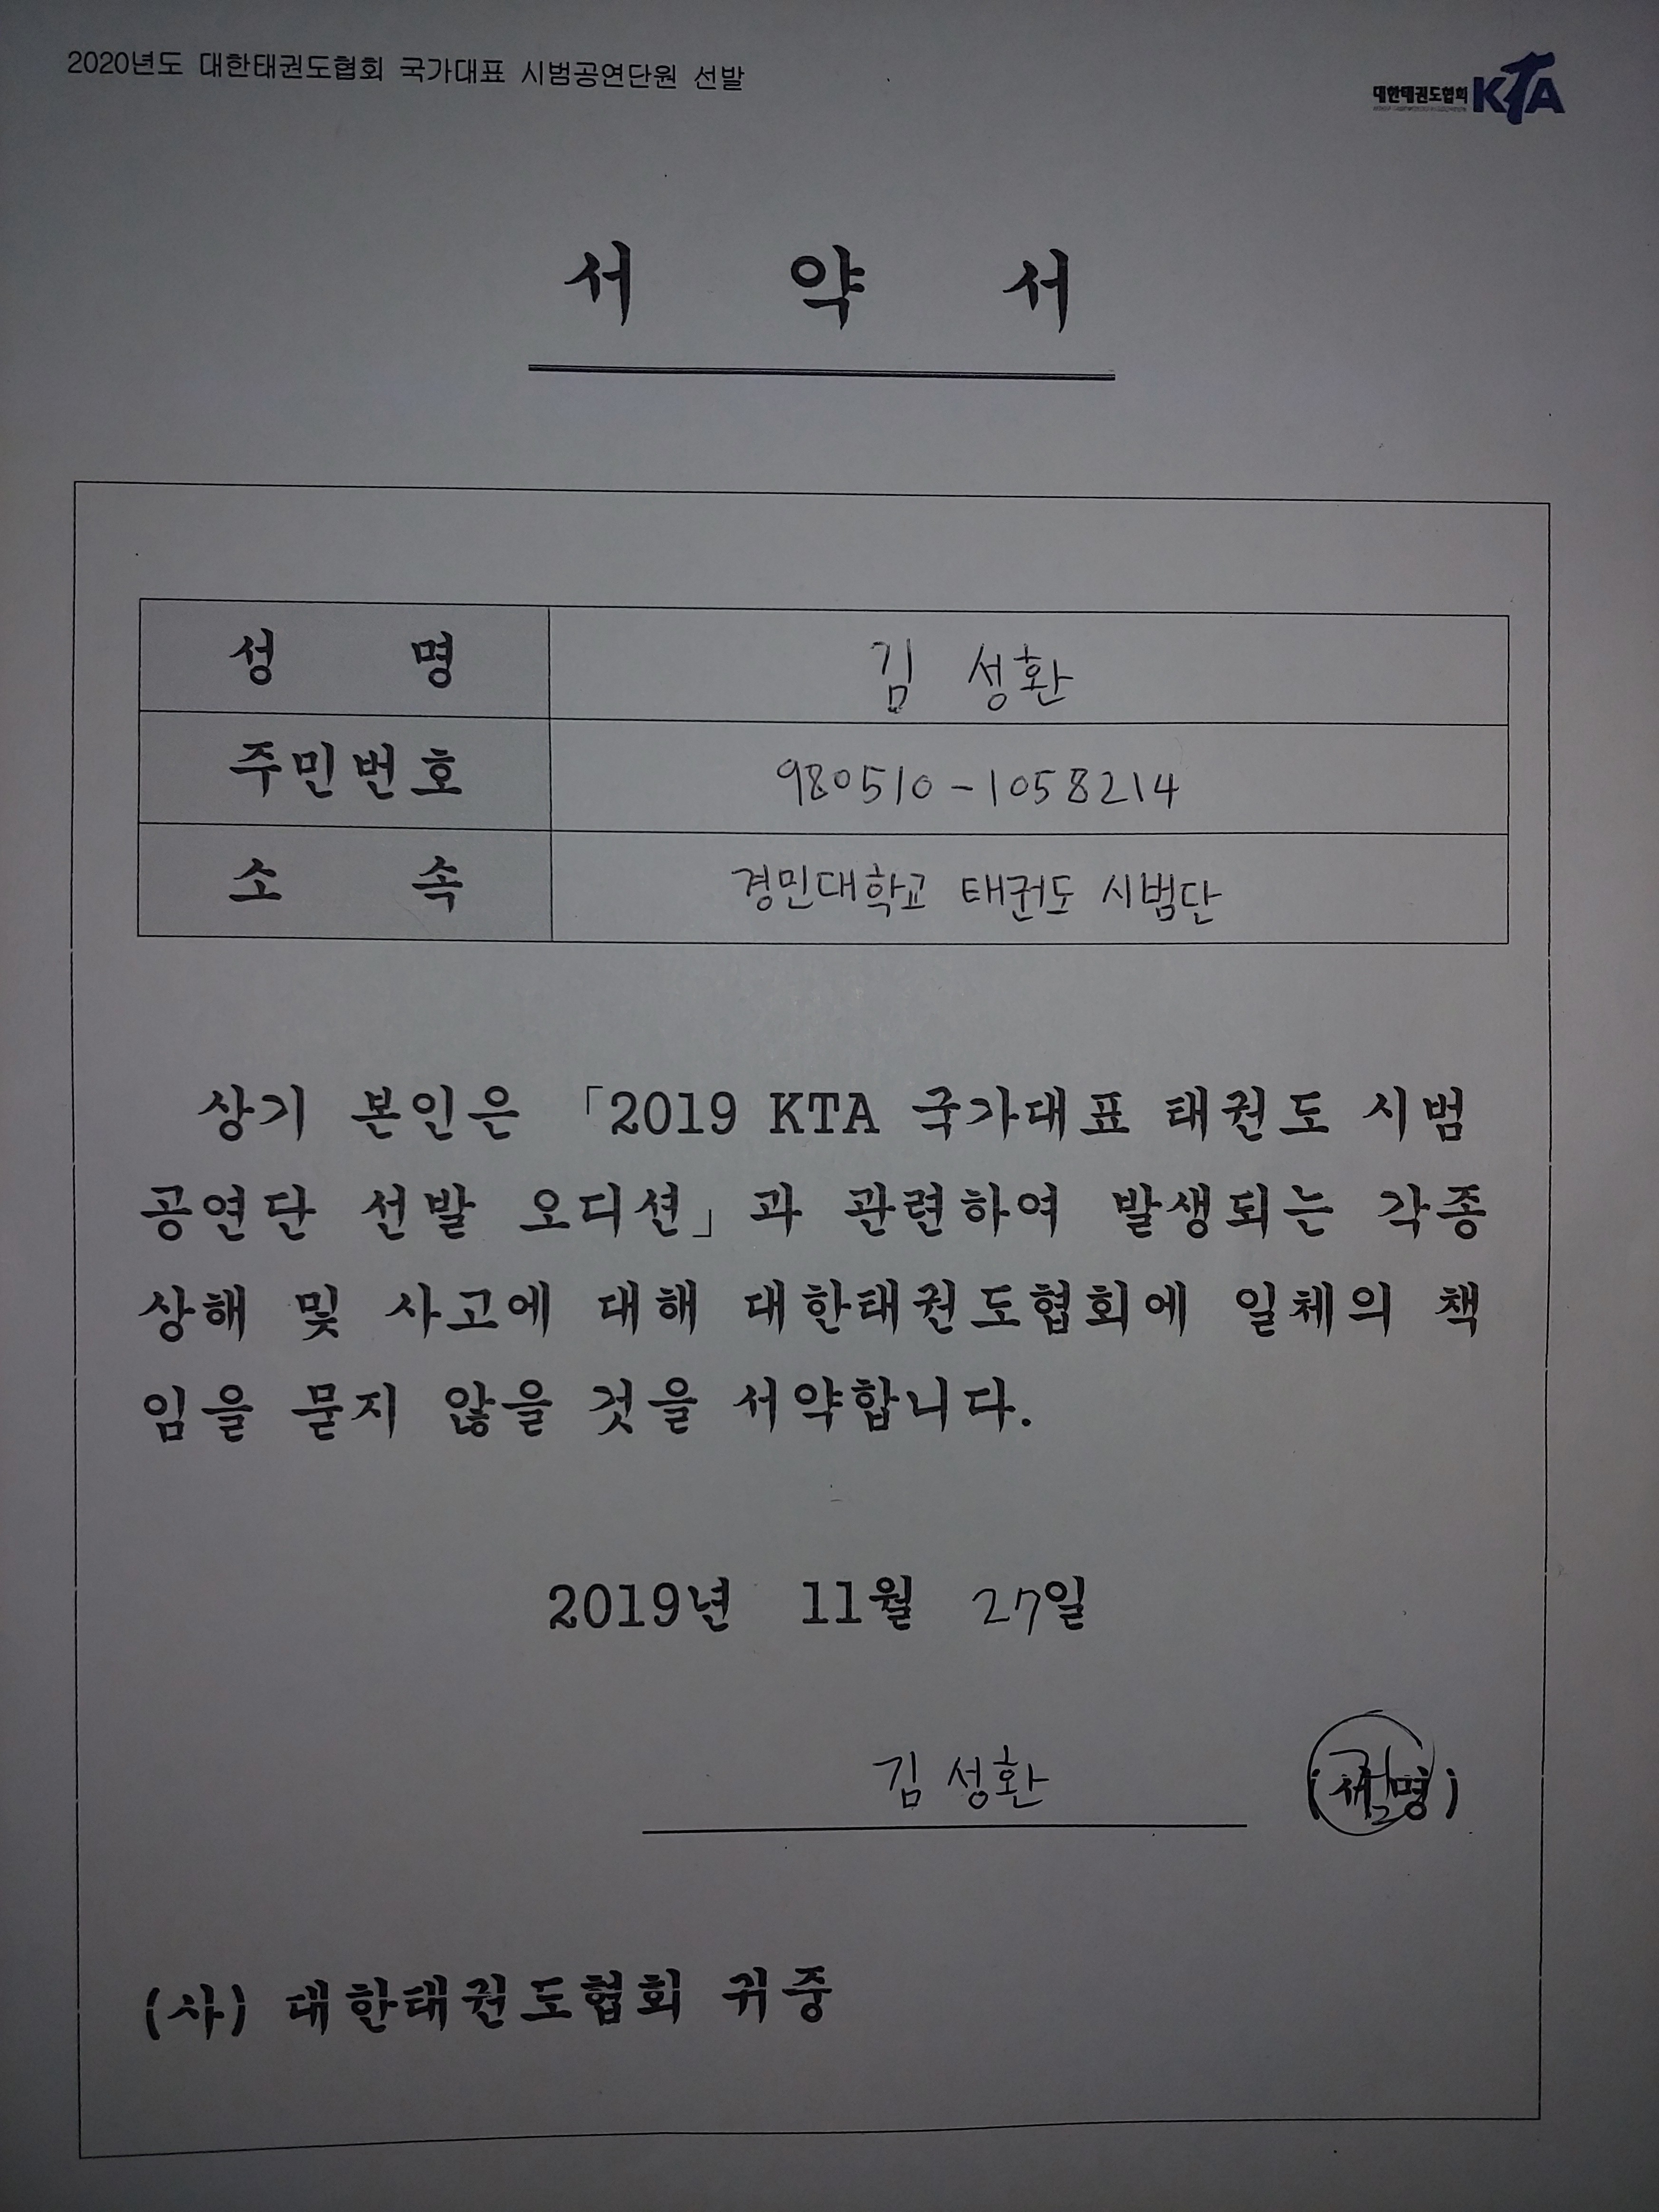 2020년도 대한태권도협회 국가대표 시범공연단원 선발
대한태권도협회 KTA
서 약 서
성 명 김 성환
주민번호 980510-1058214
소 속 경민대학교 태권도 시범단
상기 본인은 「2019 KTA 국가대표 태권도 시범
공연단 선발 오디션」과 관련하여 발생되는 각종
상해 및 사고에 대해 대한태권도협회에 일체의 책
임을 묻지 않을 것을 서약합니다.
2019년 11월 27일
김 성환 (서명)
(사) 대한태권도협회 귀중